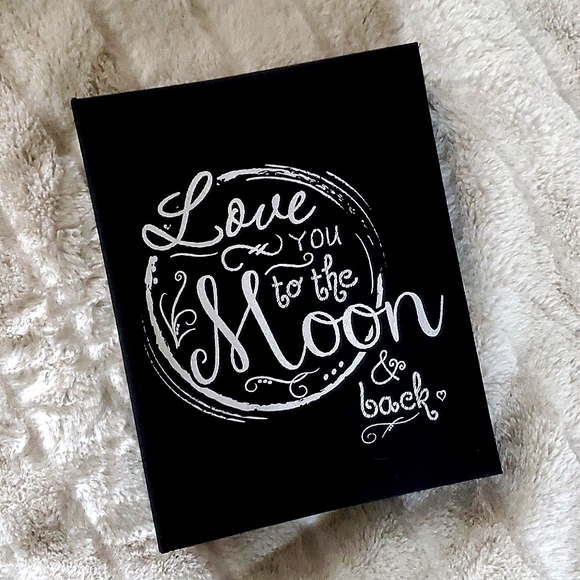 Love
YOU
to the
Moon
&
back